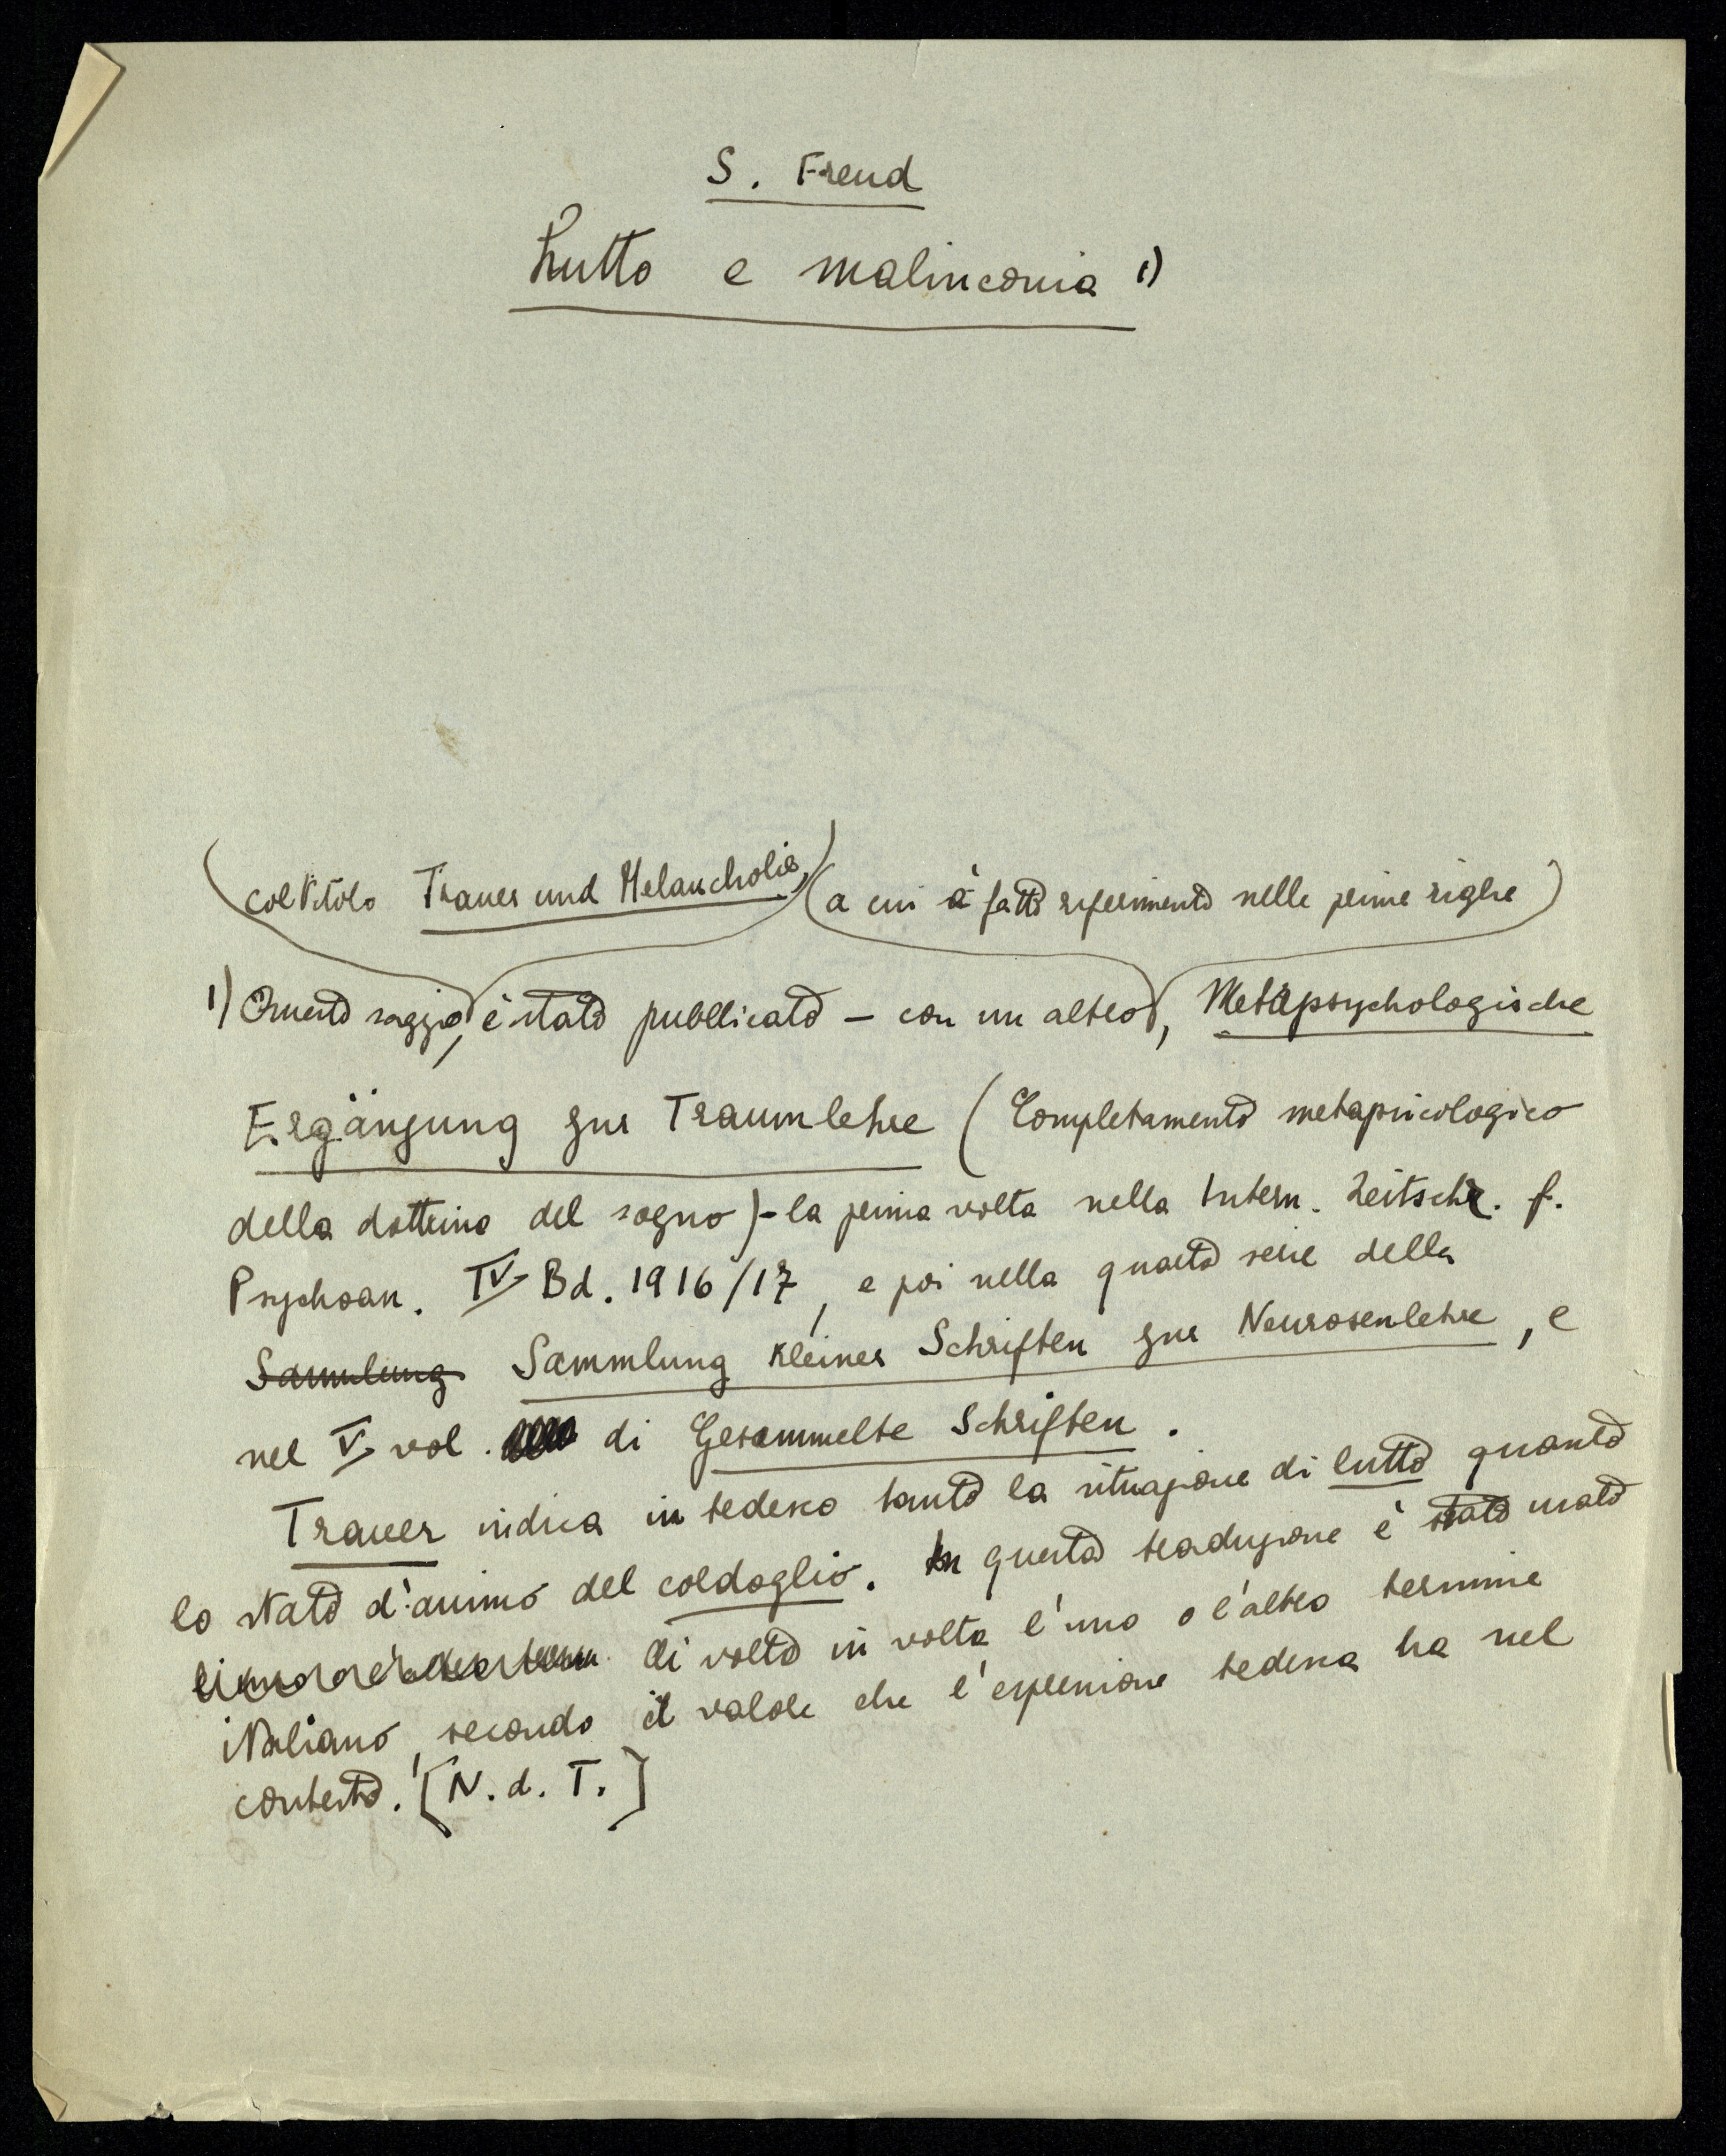 S. Freud
Lutto e malinconia 1)
col titolo Trauer und Melancholie, (a cui è fatto riferimento nelle prime righe)
1) Questo saggio, è stato pubblicato – con un altro, Metapsychologische
Ergänzung zur Traumlehre (Completamento metapsicologico
della dottrina del sogno) – la prima volta nella Intern. Zeitschr. f.
Psychoan. IV Bd. 1916/17, e poi nella quarta serie della
Sammlung Sammlung kleiner Schriften zur Neurosenlehre, e
nel V vol. di Gesammelte Schriften.
Trauer indica in tedesco tanto la situazione di lutto quanto
lo stato d'animo del cordoglio. In questa traduzione è stato usato
di volta in volta l'uno o l'altro termine
italiano, secondo il valore che l'espressione tedesca ha nel
contesto. [N. d. T.]